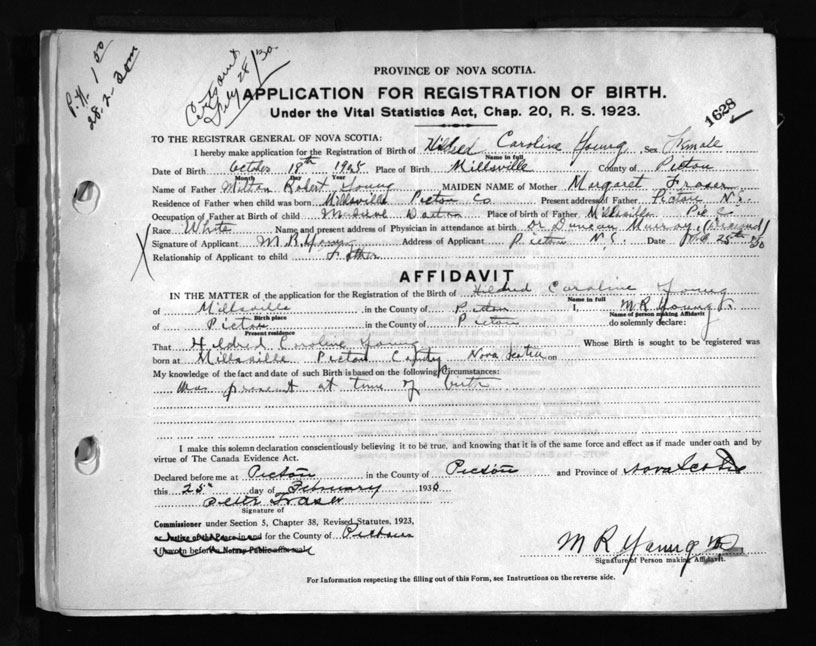 P.N. 1 50
28.2.
28/30
PROVINCE OF NOVA SCOTIA.
APPLICATION FOR REGISTRATION OF BIRTH.
Under the Vital Statistics Act, Chap. 20, R. S. 1923.
1628
TO THE REGISTRAR GENERAL OF NOVA SCOTIA:
I hereby make application for the Registration of Birth of Hildred Caroline Young Sex Female
Name in full
Date of Birth October 18th 1925 Place of Birth Millsville County of Pictou
Month Day Year
Name of Father Robert Young MAIDEN NAME of Mother Margaret Fraser
Residence of Father when child was born Millsville Pictou Co Present address of Father Pictou N.S.
Occupation of Father at Birth of child Medical Doctor Place of birth of Father Millsville Pic Co
Race White Name and present address of Physician in attendance at birth Dr Duncan Murray (Deceased)
Signature of Applicant M. R. Young Address of Applicant Pictou N.S. Date Feb 25th
Relationship of Applicant to child Father
AFFIDAVIT
IN THE MATTER of the application for the Registration of the Birth of Hildred Caroline Young
Name in full
of Millsville in the County of Pictou I, M R Young
Birth place Name of person making Affidavit
of Pictou in the County of Pictou do solemnly declare:
Present residence
That Hildred Caroline Young Whose Birth is sought to be registered was
born at Millsville Pictou County Nova Scotia on
My knowledge of the fact and date of such Birth is based on the following Circumstances:
Was present at time of birth
I make this solemn declaration conscientiously believing it to be true, and knowing that it is of the same force and effect as if made under oath and by
virtue of The Canada Evidence Act.
Declared before me at Pictou in the County of Pictou and Province of Nova Scotia
this 25 day of February 1930
Peter Fraser
Signature of
Commissioner under Section 5, Chapter 38, Revised Statutes, 1923,
or Justice of the Peace in and for the County of Pictou
M R Young MD
Signature of Person making Affidavit.
For Information respecting the filling out of this Form, see Instructions on the reverse side.